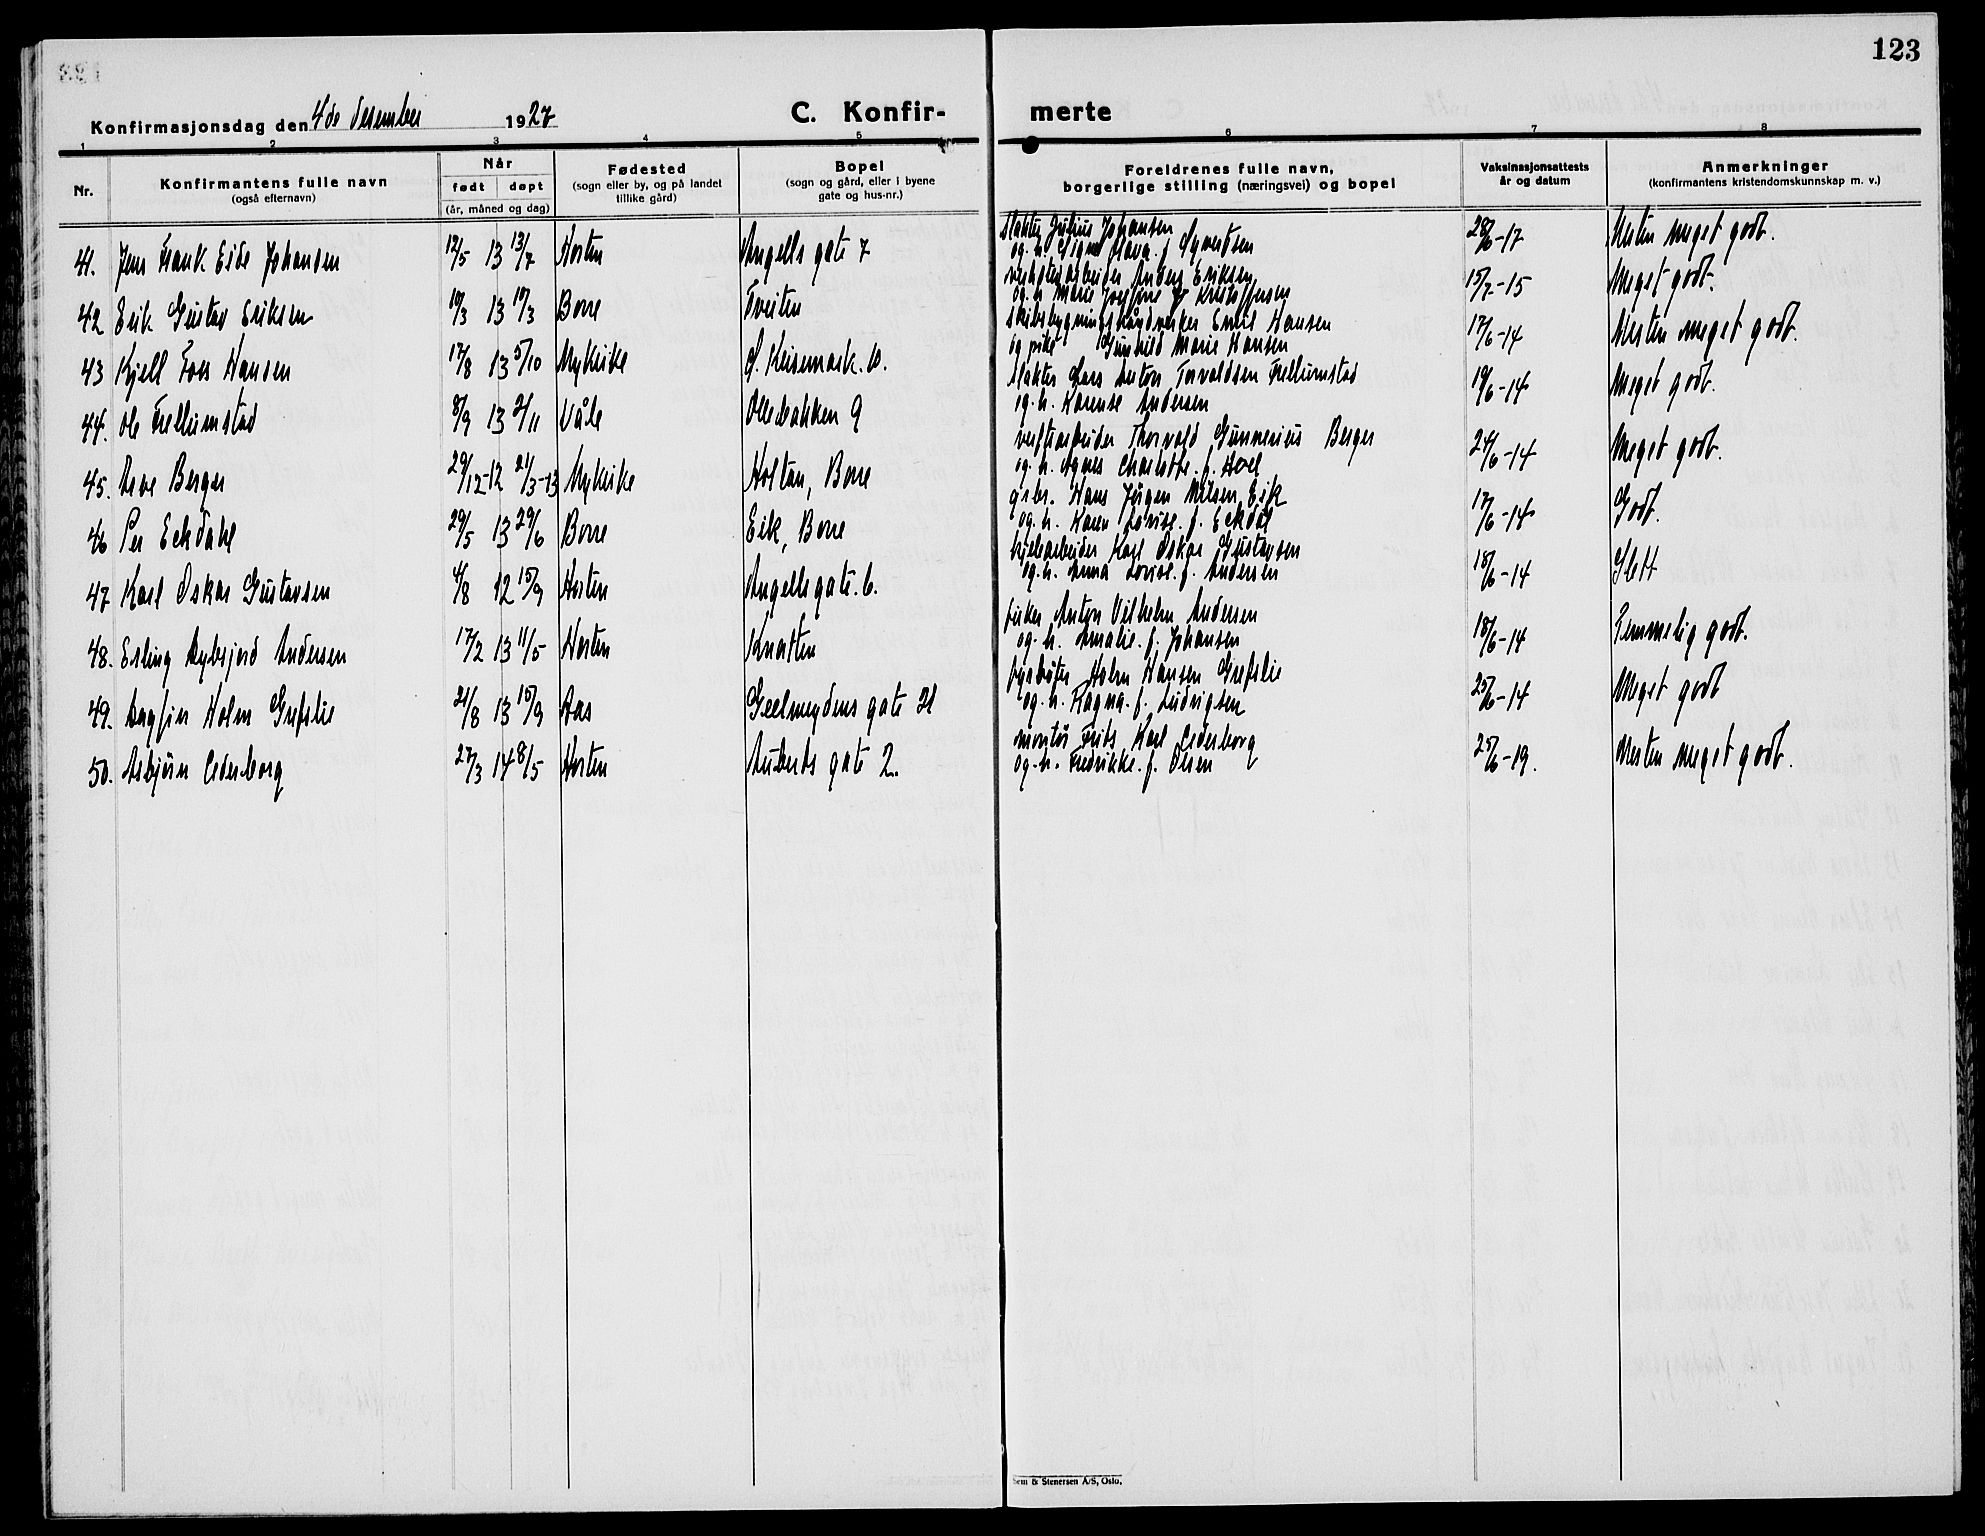 123
Konfirmasjonsdag den 4de desember 1927
C. Konfir-
merte
1 2 3 4 5 6 7 8
Nr.
Konfirmantens fulle navn
(også efternavn)
Når
født døpt
(år, måned og dag)
Fødested
(sogn eller by, og på landet
tillike gård)
Bopel
(sogn og gård, eller i byene
gate og hus-nr.)
Foreldrenes fulle navn,
borgerlige stilling (næringsvei) og bopel
Vaksinasjonsattests
år og datum
Anmerkninger
(konfirmantens kristendomskunnskap m. v.)
41. Jens Frank Eide Johansen 12/5 13 13/7 Horten Angells gate 7
Slakter Julius Johansen
og h. Signe f. Syvertsen
28/6-17 Nesten meget godt.
42 Erik Gustav Eriksen 10/3 13 19/3 Borre Tveiten
verkstedarbeider Anders Eriksen
og h. Marie Josefine f. Kristoffersen
15/7-15 Meget godt.
43 Kjell Hansen 17/8 13 5/10 Nykirke
Skibsbygningshåndverker Emil Hansen
og pike Gunhild Marie Hansen
17/6-14 Nesten meget godt.
44. Ole Frellumstad 8/9 13 2/11 Våle Ollebakken 9
Slakter Lars Anton Torvaldsen Frellumstad
og. h. Karense Andersen
19/6-14 Meget godt.
45. Arve Berger 29/12-12 21/3-13 Nykirke Holtan, Borre
verftsarbeider Thorvald Gunnerius Berger
og. h. Agnes Charlotte. f. Hoel
24/6-14 Meget godt.
46 Per Eckdahl 29/5 13 29/6 Borre Eik, Borre
grbr. Hans Jørgen Nilsen, Eik
og. h. Karen Lovise. f. Eckdal
17/6-14 Godt.
47 Karl Oskar Gustavsen 4/8 12 15/9 Horten Angells gate. 6.
Karl Oskar Gustavsen
og. h. Anna Lovise. f. Andersen
18/6-14 Slett
48. Erling Andersen 17/2 13 11/5 Horten Knatten
fisker Anton Vilhelm Andersen
og. h. Amalie. f. Johansen
18/6-14 Temmelig godt.
49. Dagfin Holm Grefslie 21/8 13 15/9 Aas Geelmuydens gate 21
fyrbøter Holm Hansen Grefslie
og. h. Ragna. f. Ludvigsen
25/6-14 Meget godt
50. Asbjörn Cederborg 27/3 14 8/5 Horten Auberts gate 2.
montør Frits Karl Cederborg
og. h. Fredrikke. f. Olsen
25/6-19. Nesten meget godt.
Sem & Stenersen A/S, Oslo.